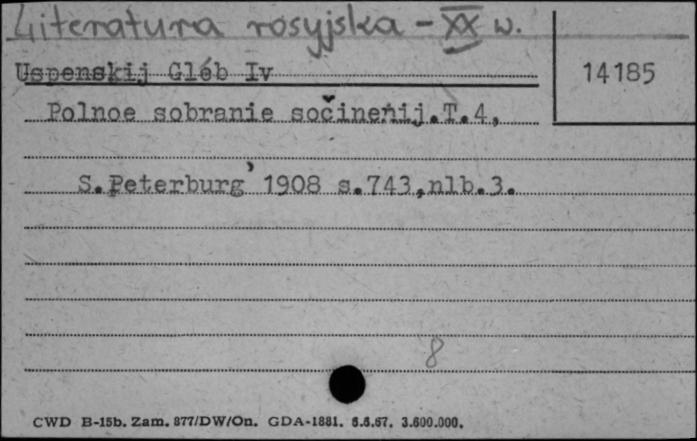 Literatura rosyjska - XX w.
Uspenskij Glěb Iv
14185
Polnoe sobranie sočinenij.T.4,
S.Peterburg' 1908 s.743,nlb.3.
8
CWD B-15b. Zam. 877/DW/On. GDA-1881. 6.5.67. 3.600.000.